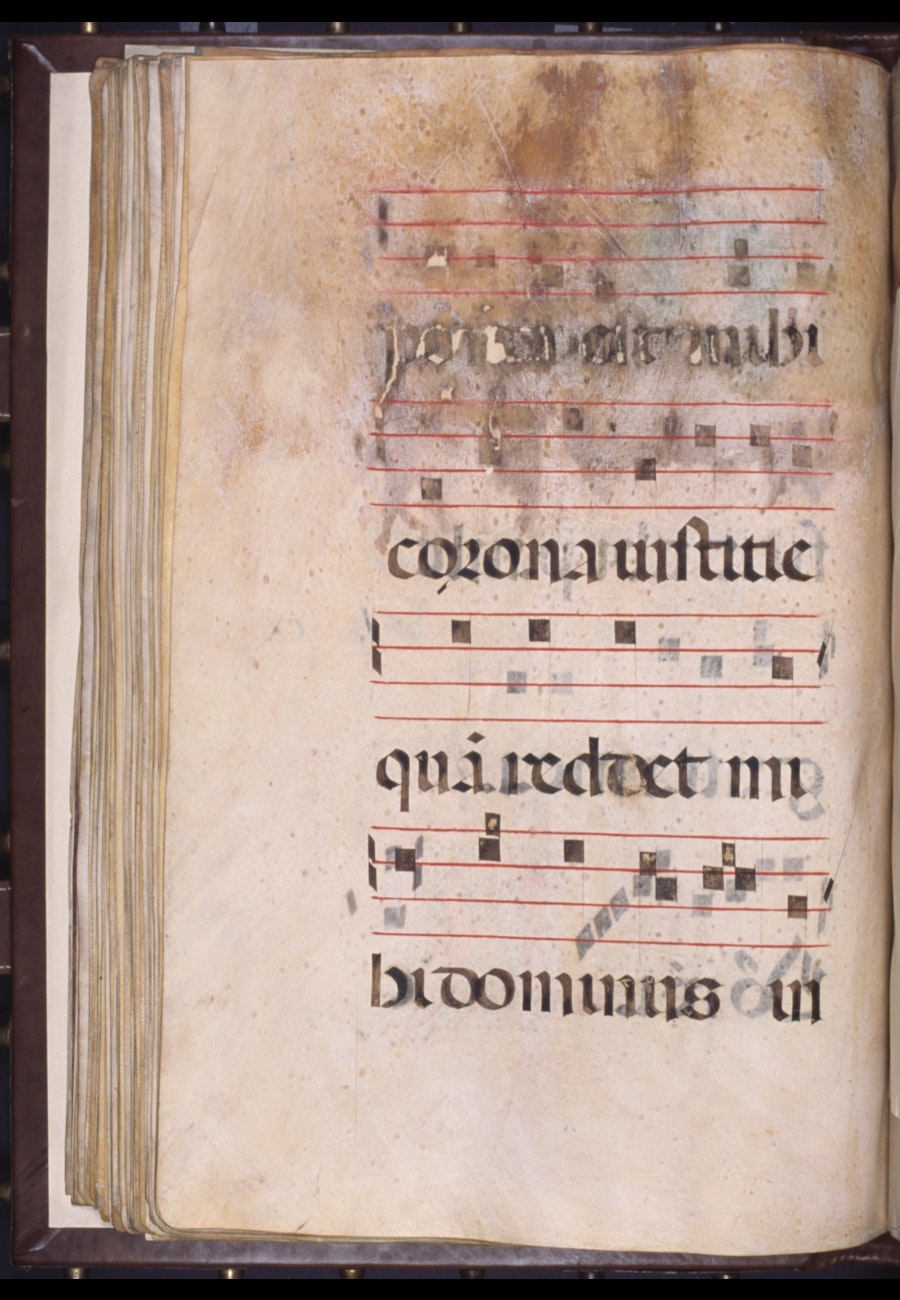 posita est michi
corona iustitie
quā reddet mi
hi dominus in